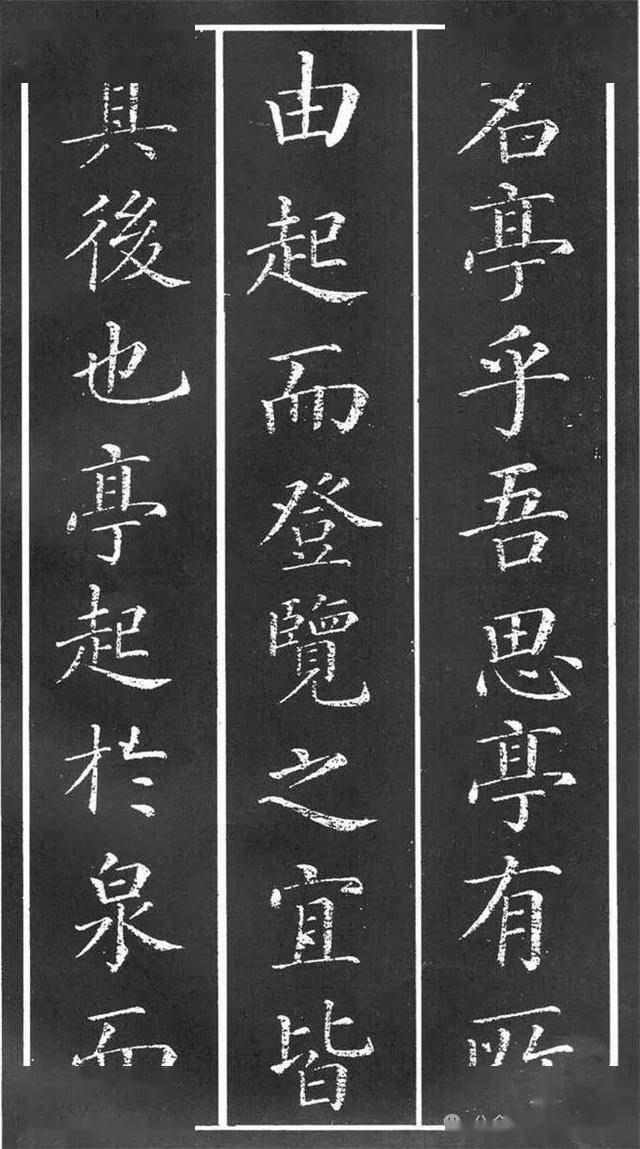 名亭乎吾思亭有所
由起而登覽之宜皆
具後也亭起於泉而